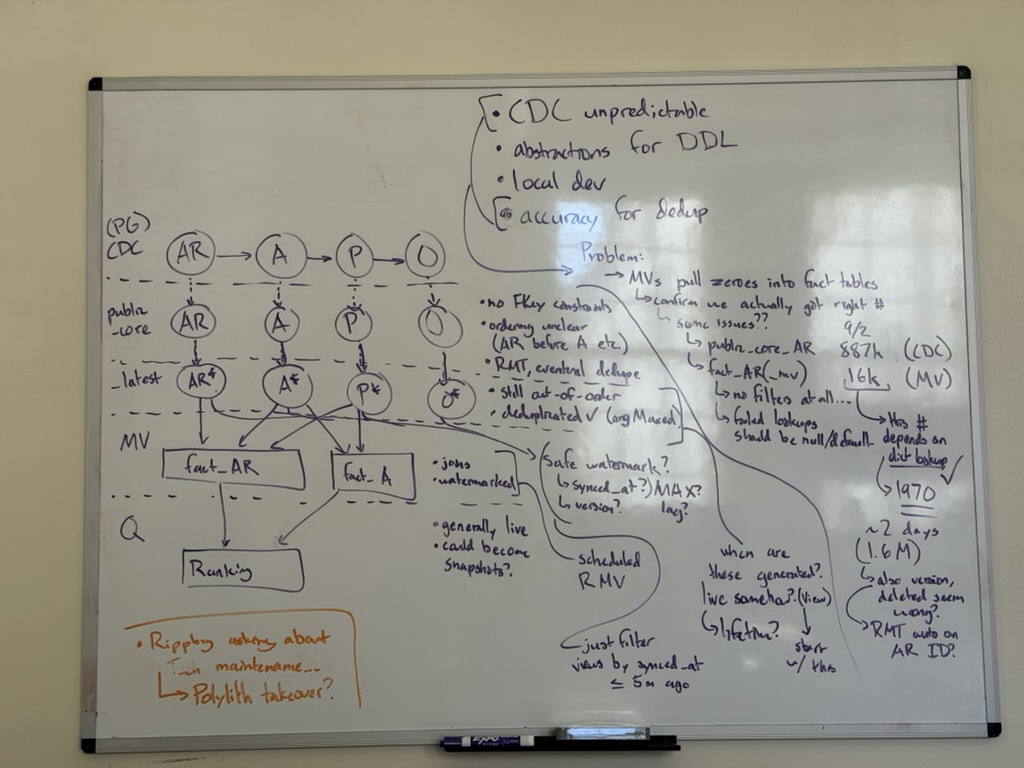 • CDC unpredictable
• abstractions for DDL
• local dev
• accuracy for dedup
(PG)
CDC
AR
A
P
O
public
_core
AR
A
P
O
• no FKey constraints
• ordering unclear
(AR before A etc.)
• RMT, eventual dedupe
_latest
AR*
A*
P*
O*
• still out-of-order
• deduplicated ✓ (argMaxed)
MV
fact_AR
fact_A
• joins
• watermarked
Q
Ranking
• generally live
• could become
snapshots?
Safe watermark?
↳ synced_at?) MAX?
↳ version? lag?
scheduled
RMV
just filter
views by synced_at
≤ 5m ago
when are
these generated?
live somehow? (view)
↳ lifetime?
start
w/ this
Problem:
→ MVs pull zeroes into fact tables
↳ confirm we actually got right #
↳ some issues??
9/2
↳ public_core_AR 887k (CDC)
↳ fact_AR(_mv) 16k (MV)
↳ no filters at all...
↳ failed lookups
should be null/default
this #
depends on
dict lookup ✓
1970
~2 days
(1.6M)
↳ also version,
deleted seem
wrong?
RMT auto on
AR ID?
• Rippling asking about
maintenance...
↳ Polylith takeover?
EXPO